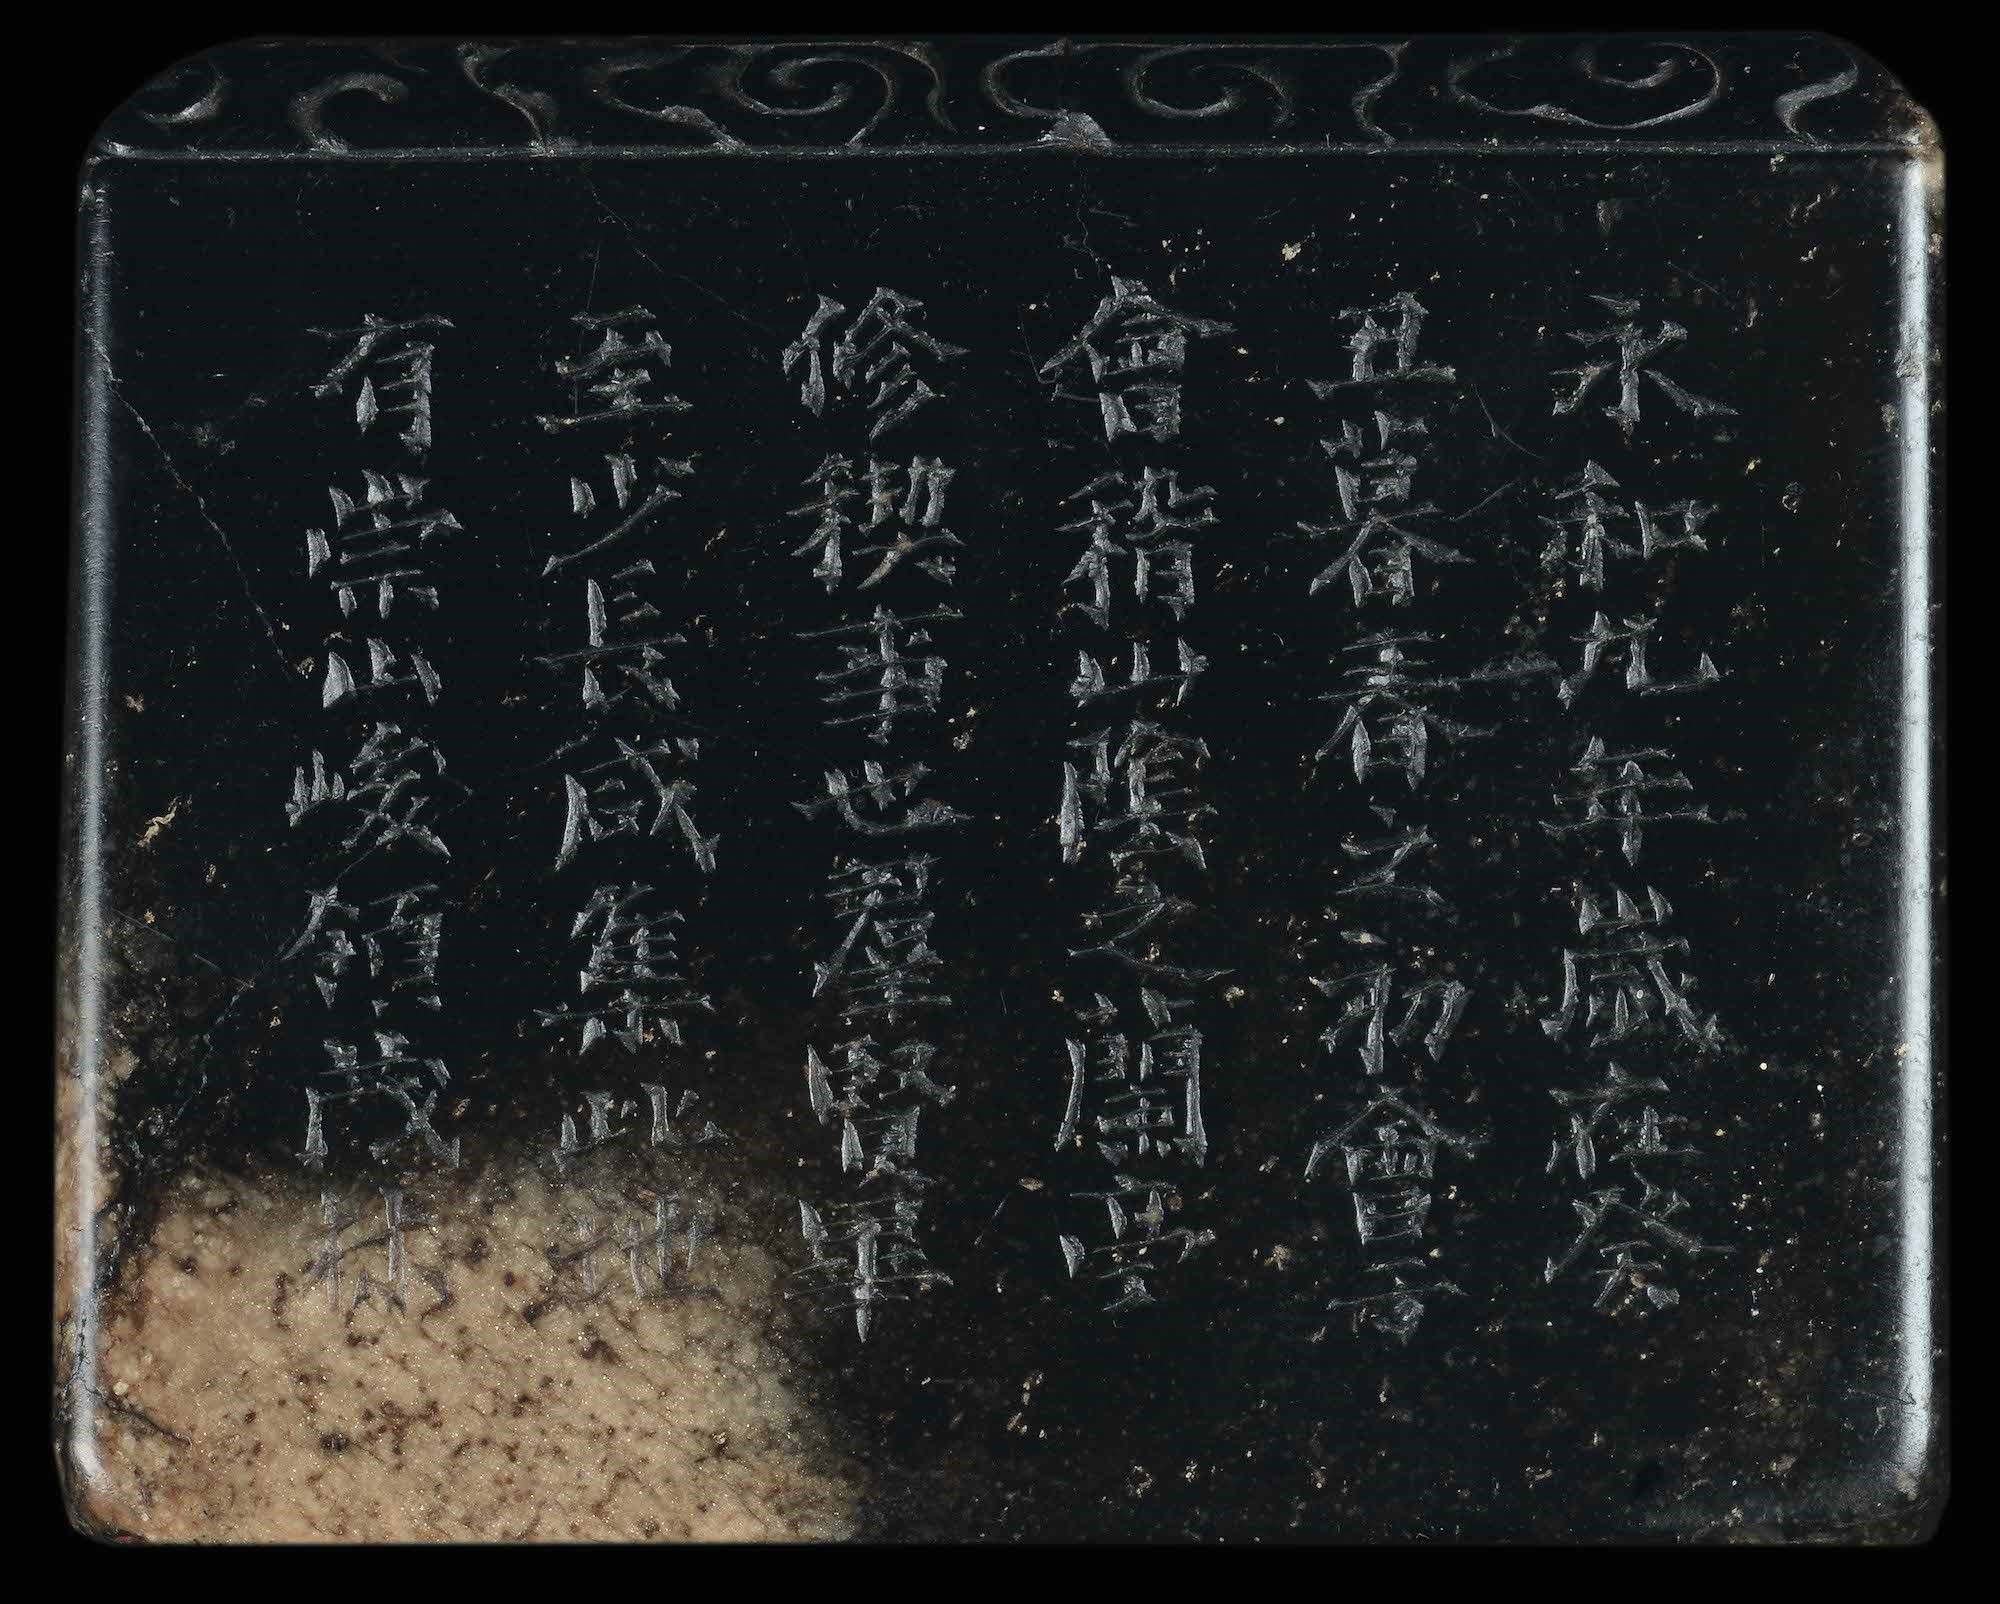 永和九年歲在癸
丑暮春之初會于
會稽山陰之蘭亭
修稧事也羣賢畢
至少長咸集此地
有崇山峻領茂林